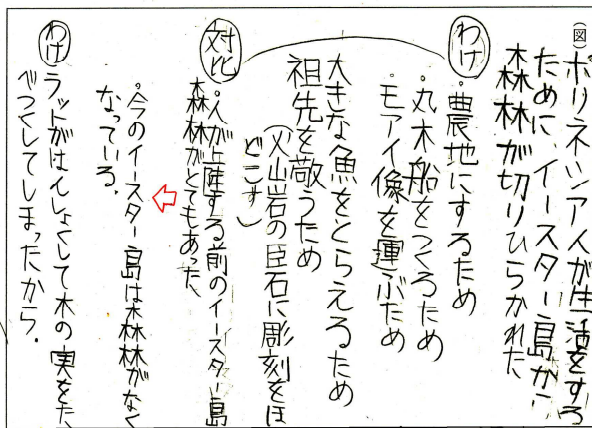 (図)ポリネシア人が生活をする
ために、イースター島から
森林が切りひらかれた
わけ
・農地にするため
・丸木船をつくるため
・モアイ像を運ぶため
大きな魚をとらえるため
祖先を敬うため
(火山岩の巨石に彫刻をほ
どこす)
対比
・人が上陸する前のイースター島
森林がとてもあった、
⇦
・今のイースター島は森林がなく
なっている。
わけ
ラットがはんしょくして木の実をた
べつくしてしまったから。